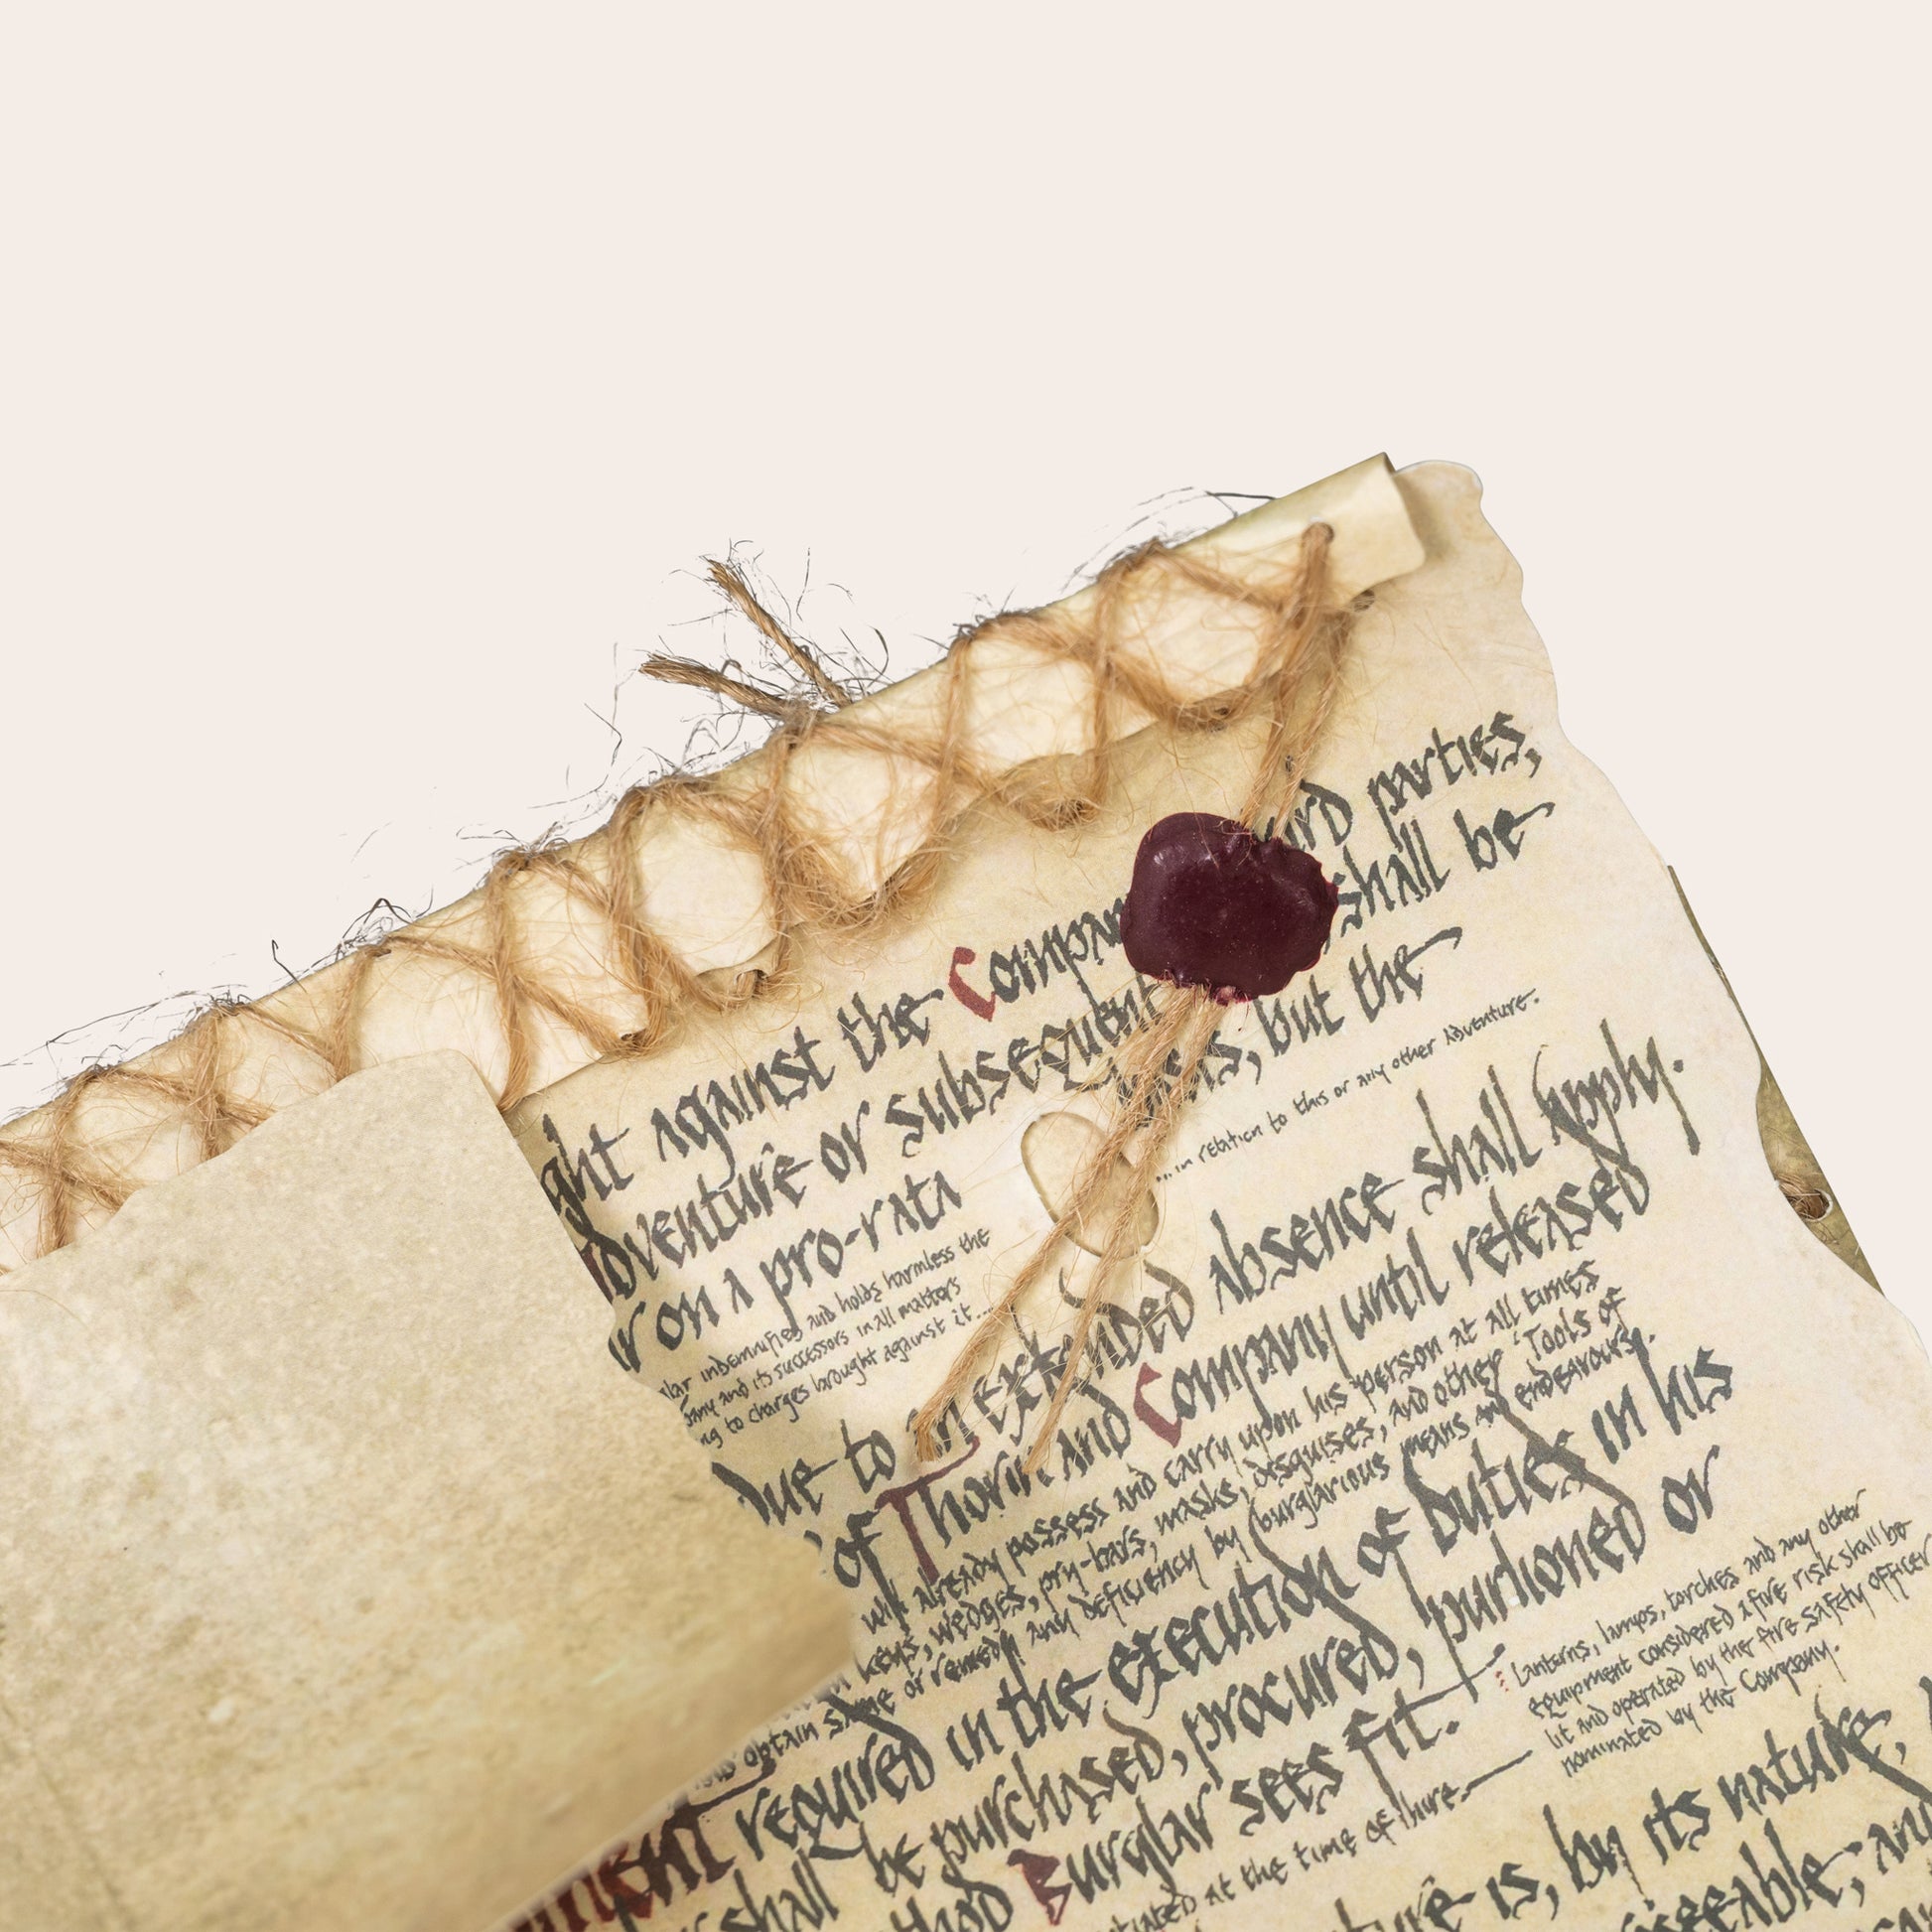 against the Company shall be
parties,
Adventure or subsequent but the
or on a pro-rata
...in relation to this or any other Adventure.
indemnifies and holds harmless the
and its successors in all matters
to charges brought against it...
due to an extended absence shall apply.
of Thorin and Company until released
already possess and carry upon his person at all times
keys, wedges, pry-bars, masks, disguises, and other 'Tools of
obtain same or remedy any deficiency by burglarious means and endeavours.
required in the execution of duties in his
shall be purchased, procured, purloined or
Burglar sees fit.
Lanterns, lamps, torches and any other
equipment considered a fire risk shall be
lit and operated by the fire safety officer
nominated by the Company.
at the time of hire.
is, by its nature,